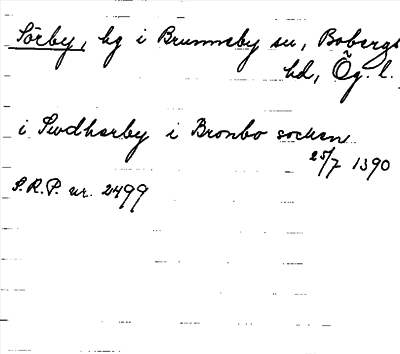 Sörby, hg i Brunneby sn, Bobergs
hd, Ög. l.
i Swdherby i Bronbo socken
25/7 1390
S.R.P. nr. 2499